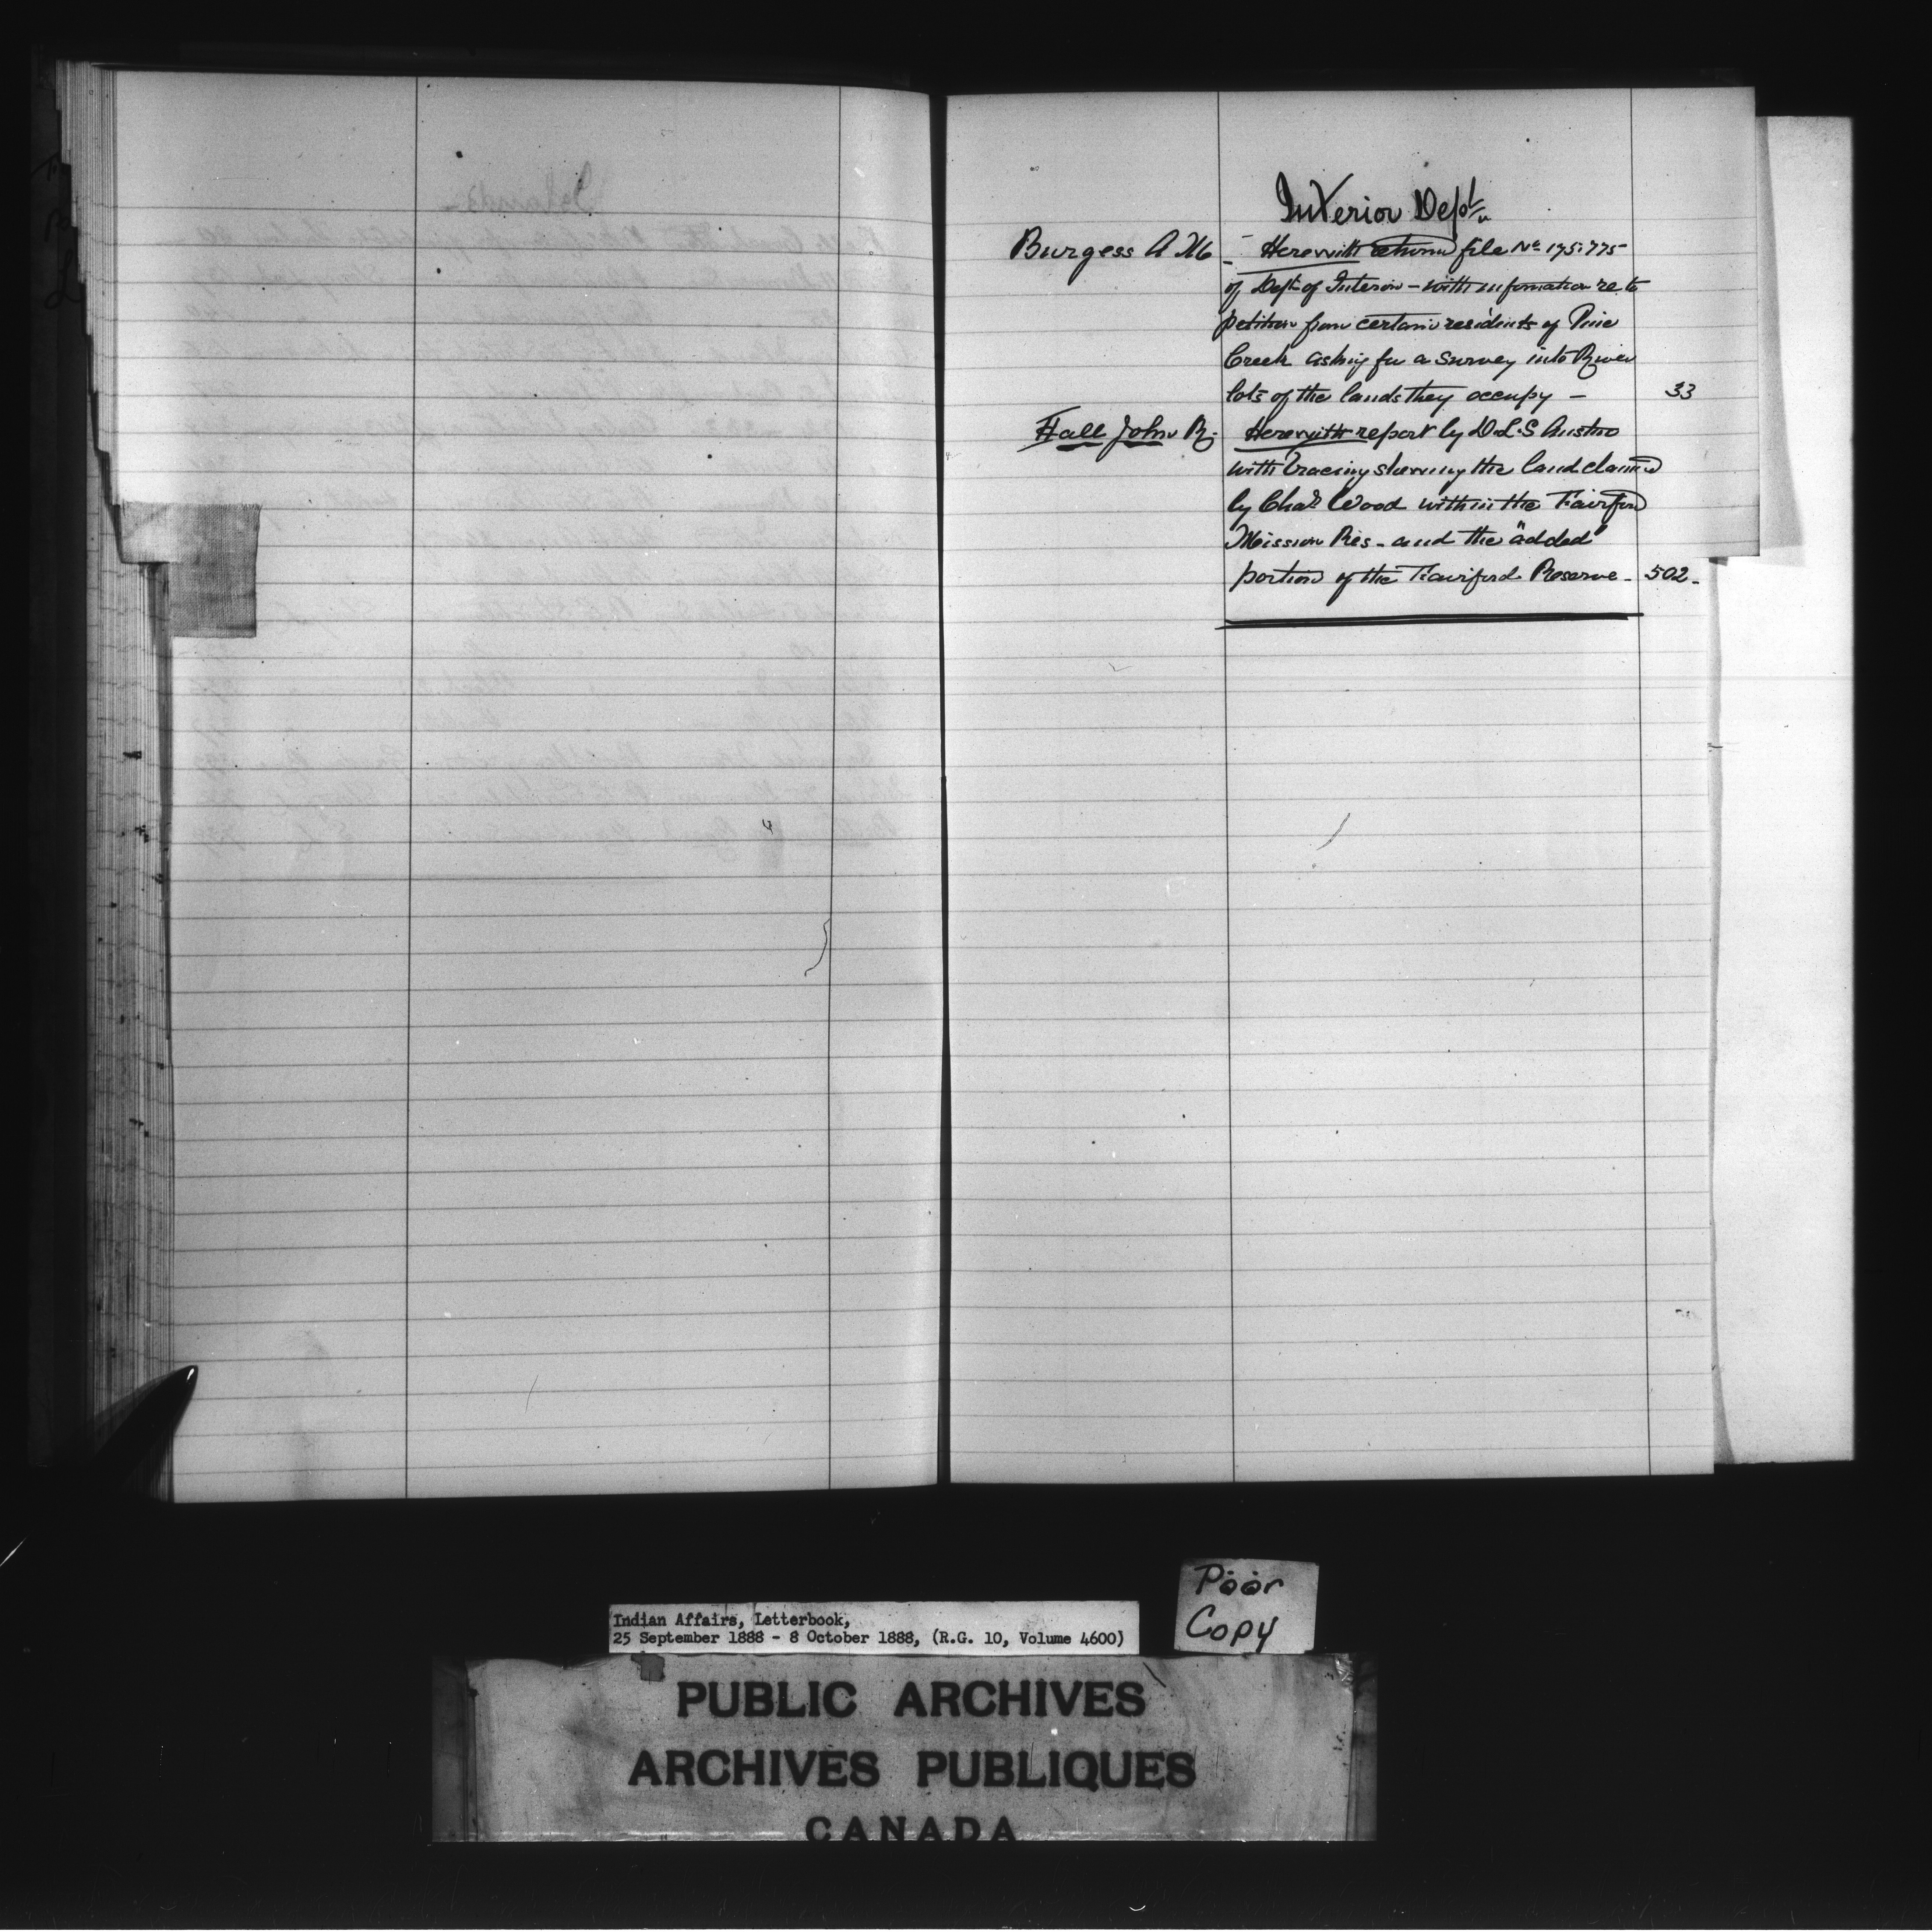 Interior Dept
Burgess A M - Herewith return file No 175.775
of Dept of Interior - with information re to
petition from certain residents of Pine
Creek asking for a survey into River
lots of the lands they occupy - 33
Hall John R. Herewith report by D.L.S Austin
with tracing showing the land claimed
by Chas Wood within the Fairford
Mission Res - and the "added"
portion of the Fairford Reserve - 502 -
Poor
Copy
Indian Affairs, Letterbook,
25 September 1888 - 8 October 1888, (R.G. 10, Volume 4600)
PUBLIC ARCHIVES
ARCHIVES PUBLIQUES
CANADA